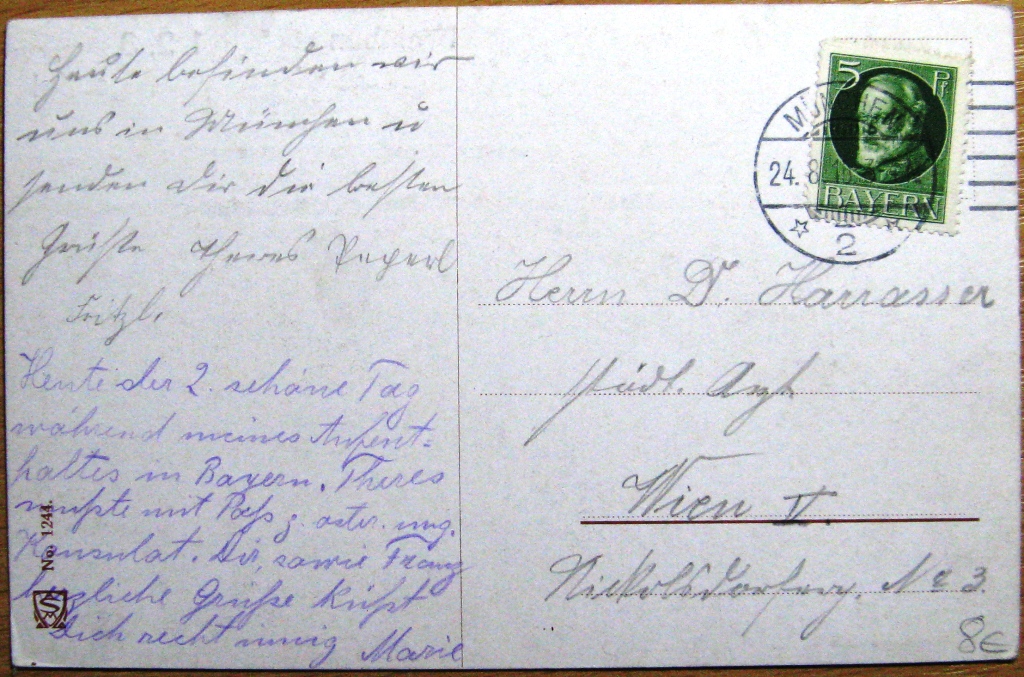 Heute befinden wir
uns in München u
senden Dir die besten
Grüße Theres Peperl
Fritzl.
Heute der 2. schöne Tag
während meines Aufent-
haltes in Bayern. Theres
mußte mit Paß z. öster. ung.
Konsulat. Dir, sowie Franz
herzliche Grüße küßt
Dich recht innig Marie
No. 1244.
5 Pf
BAYERN
MÜNCHEN
24. 8
2
Herrn Dr. Harrasser
städt. Arzt
Wien V.
Nickolsdorferg. No 3.
8€